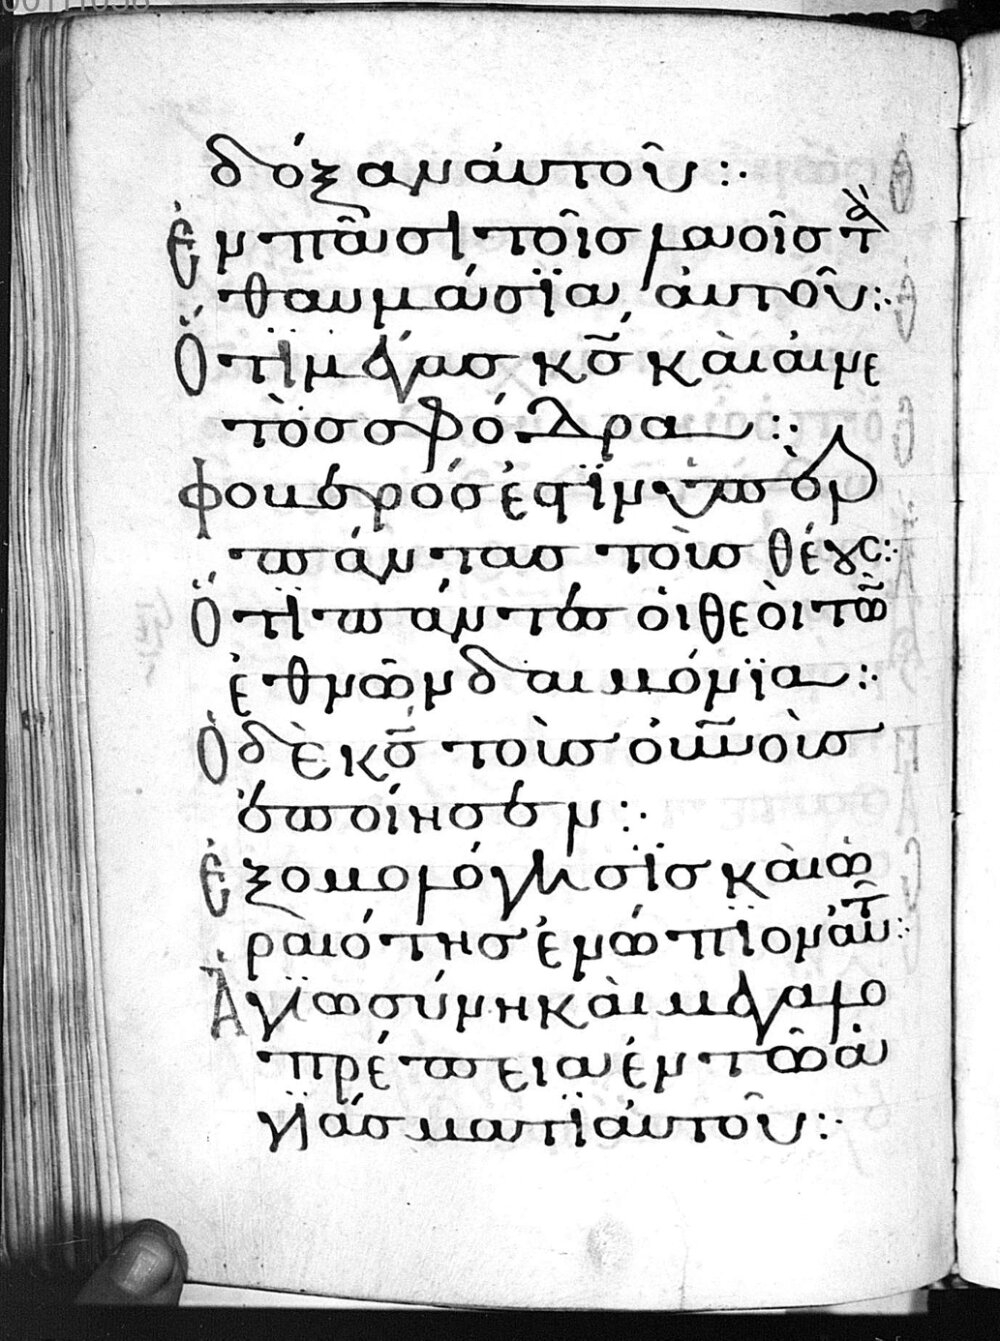 δόξαν αυτοῦ :·
Ἐν πᾶσι τοῖσ λαοῖσ τὰ
θαυμάσϊα ἀυτοῦ :·
Ὅτϊ μέγασ κ̅σ̅ κὰι ἀινε
τὸσ σφόδρα :·
φοβερόσ ἐστϊν ὑπὲρ
πάντασ τοὺσ θεούς :·
Ὅτϊ πάντεσ ὁι θεὸι τῶ
ἐθνῶν δαιμόνϊα :·
Ὁ δὲ κ̅σ̅ τοὺσ ὀυ̅νοὺσ
ἐποίησεν :·
Ἐξομολόγησϊσ κὰι ὡ
ραιότησ ἐνώπϊον ἀυτ̑
Ἁγϊωσύνη κὰι μεγαλο
πρέπεια ἐν τῶ ἁ
γϊάσματϊ ἀυτοῦ :·